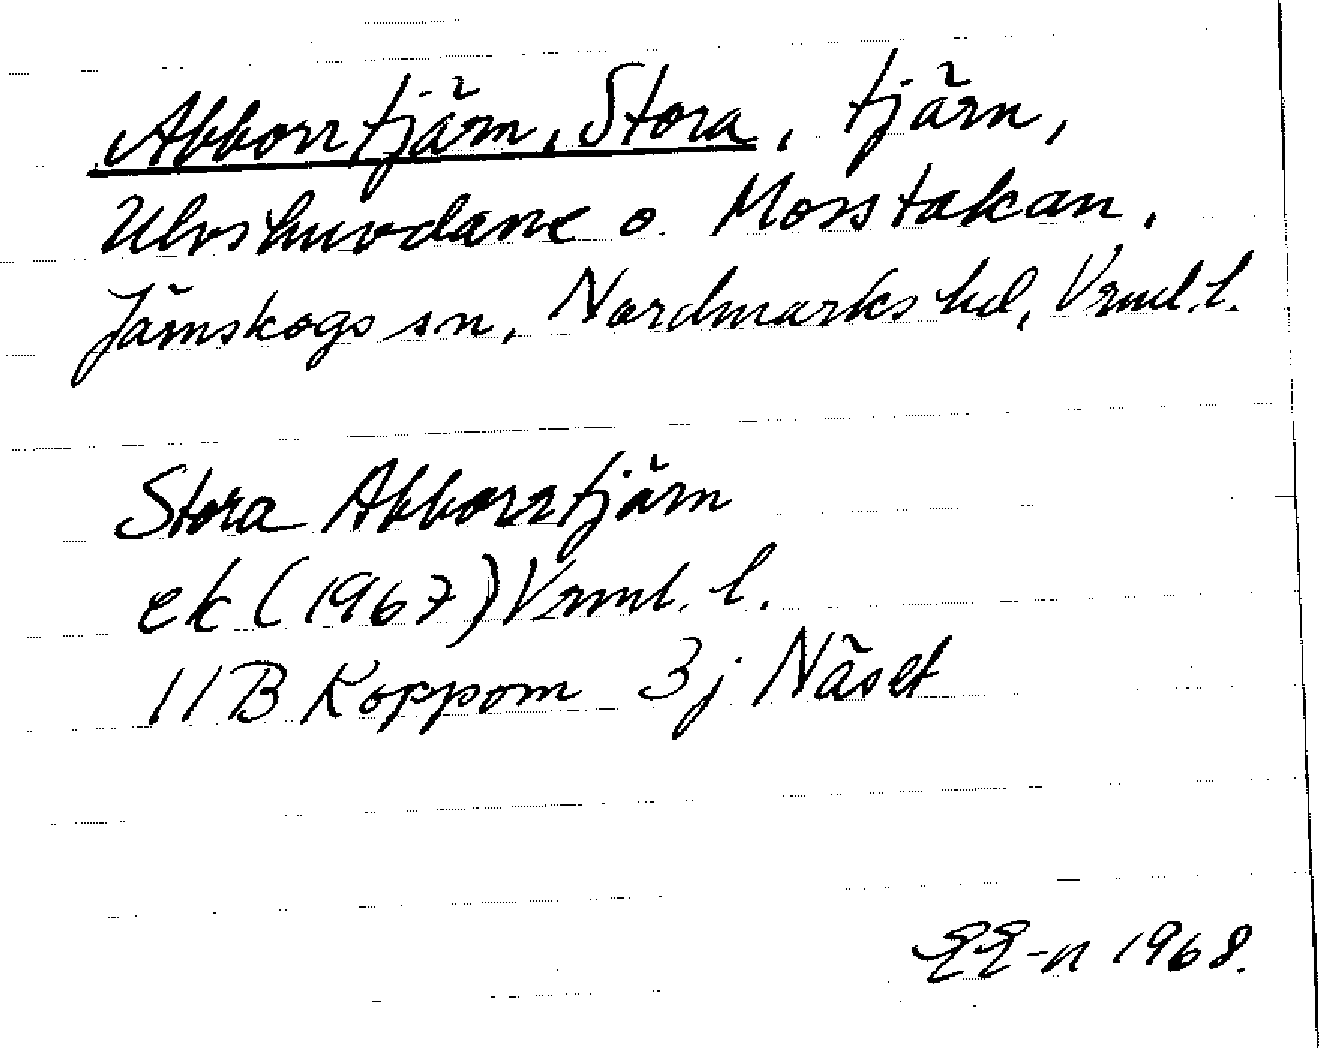 Abborrtjärn, Stora, tjärn,
Ulvshuvdane o. Morstakan,
Järnskogs sn, Nordmarks hd, Vrml. l.
Stora Abborrtjärn
ek (1967) Vrml. l.
11B Koppom 3j Näset
EE-n 1968.